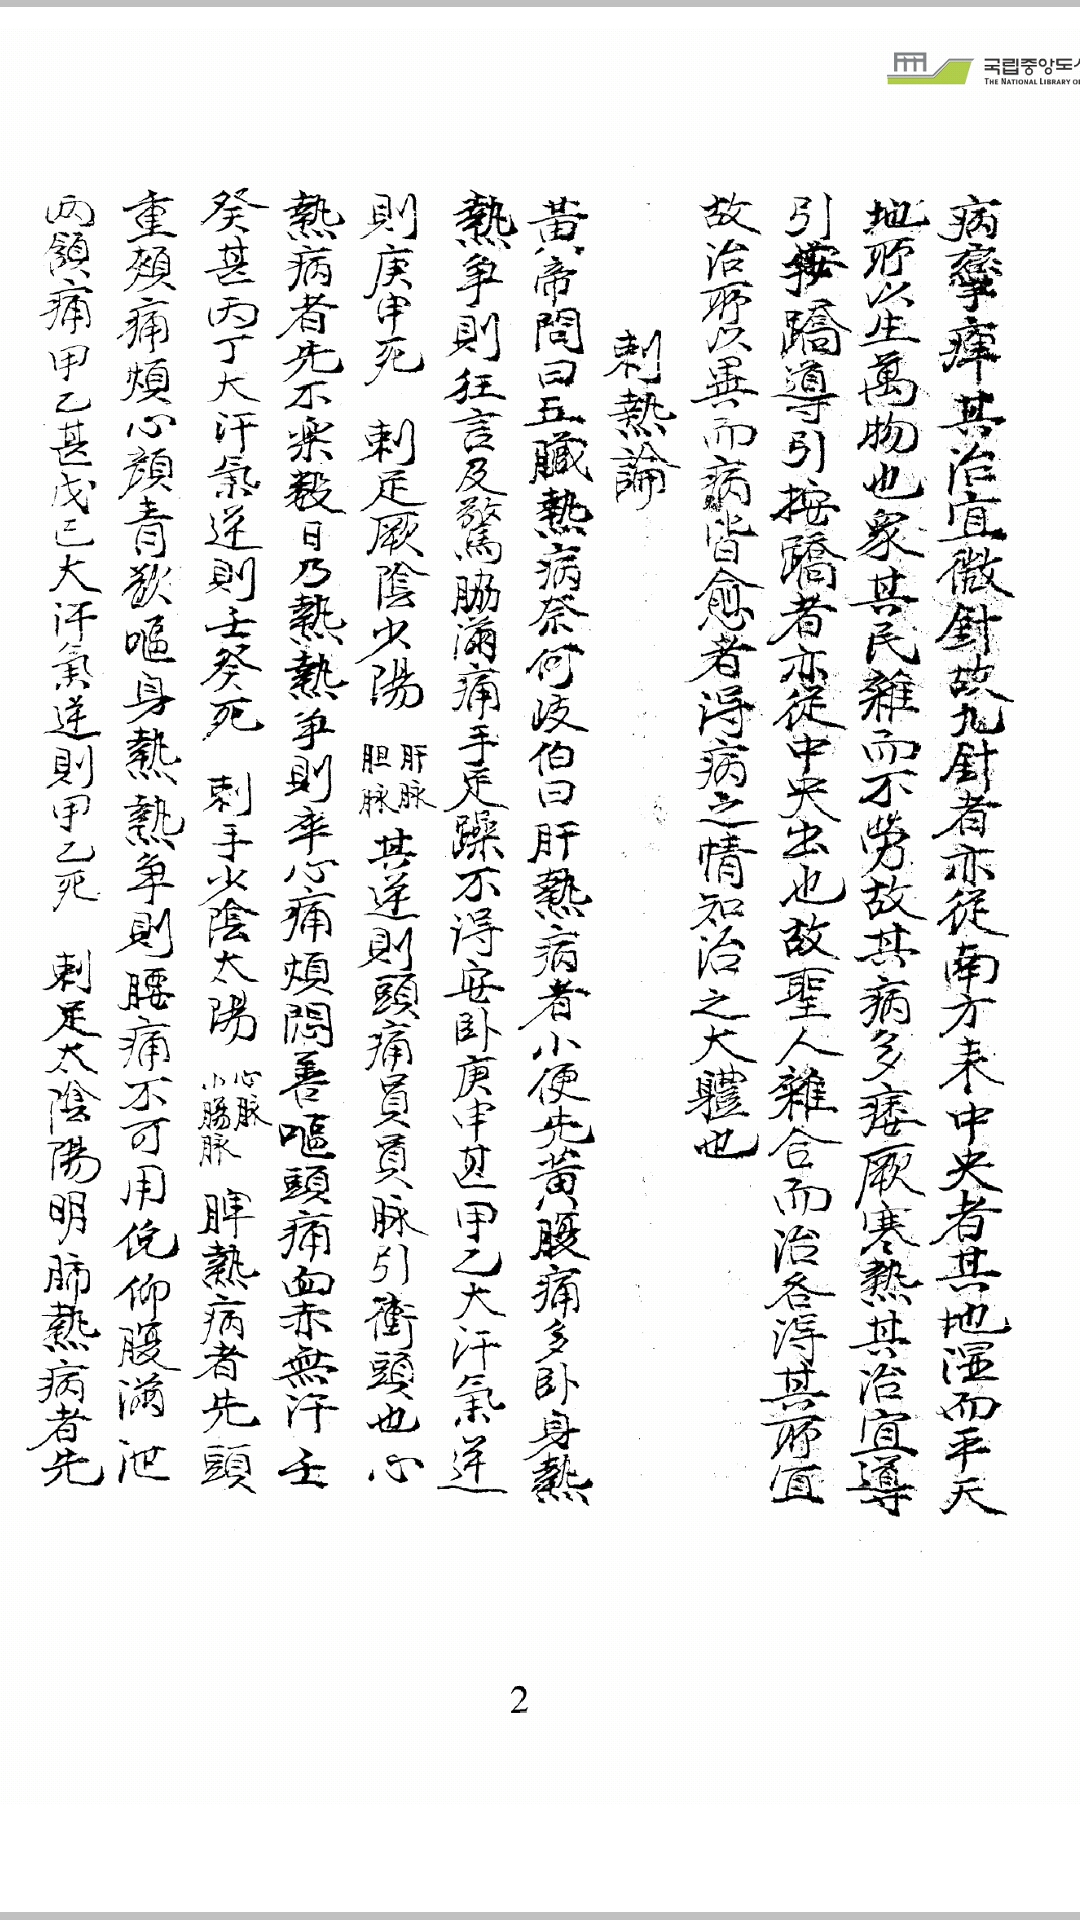 국립중앙도서
THE NATIONAL LIBRARY OF
病攣痺其治宜微針故九針者亦從南方来中央者其地湿而平天
地所以生萬物也衆其民雜而不勞故其病多痿厥寒熱其治宜導
引按蹻導引按蹻者亦從中央出也故聖人雜合而治各得其所宜
故治所以異而病皆愈者得病之情知治之大軆也
刺熱論
黃帝問曰五臟熱病奈何岐伯曰肝熱病者小便先黃腹痛多卧身熱
熱争則狂言及驚脇滿痛手足躁不得安卧庚申甚甲乙大汗氣逆
則庚申死 刺足厥陰少陽 肝脉胆脉 其逆則頭痛員員脉引衝頭也心
熱病者先不楽数日乃熱熱争則卒心痛煩悶善嘔頭痛面赤無汗壬
癸甚丙丁大汗氣逆則壬癸死 刺手少陰太陽 心脉小腸脉 脾熱病者先頭
重頰痛煩心顔青欲嘔身熱熱争則腰痛不可用俛仰腹滿泄
两頷痛甲乙甚戊己大汗氣逆則甲乙死 刺足太陰陽明肺熱病者先
2